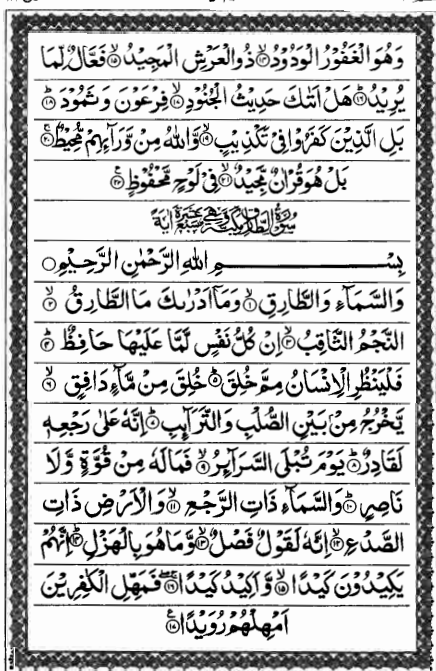 وَهُوَ الْغَفُوْرُ الْوَدُوْدُ ۙ﴿۱۴﴾ ذُو الْعَرْشِ الْمَجِيْدُ ۙ﴿۱۵﴾ فَعَّالٌ لِّمَا
يُرِيْدُ ؕ﴿۱۶﴾ هَلْ اَتٰىكَ حَدِيْثُ الْجُنُوْدِ ۙ﴿۱۷﴾ فِرْعَوْنَ وَ ثَمُوْدَ ؕ﴿۱۸﴾
بَلِ الَّذِيْنَ كَفَرُوْا فِيْ تَكْذِيْبٍ ۙ﴿۱۹﴾ وَّ اللّٰهُ مِنْ وَّرَآئِهِمْ مُّحِيْطٌ ۚ﴿۲۰﴾
بَلْ هُوَ قُرْاٰنٌ مَّجِيْدٌ ۙ﴿۲۱﴾ فِيْ لَوْحٍ مَّحْفُوْظٍ ﴿۲۲﴾
بِسْمِ اللّٰهِ الرَّحْمٰنِ الرَّحِيْمِ
وَالسَّمَآءِ وَالطَّارِقِ ۙ﴿۱﴾ وَمَاۤ اَدْرٰىكَ مَا الطَّارِقُ ۙ﴿۲﴾
النَّجْمُ الثَّاقِبُ ۙ﴿۳﴾ اِنْ كُلُّ نَفْسٍ لَّمَّا عَلَيْهَا حَافِظٌ ؕ﴿۴﴾
فَلْيَنْظُرِ الْاِنْسَانُ مِمَّ خُلِقَ ؕ﴿۵﴾ خُلِقَ مِنْ مَّآءٍ دَافِقٍ ۙ﴿۶﴾
يَّخْرُجُ مِنْۢ بَيْنِ الصُّلْبِ وَالتَّرَآئِبِ ؕ﴿۷﴾ اِنَّهٗ عَلٰى رَجْعِهٖ
لَقَادِرٌ ؕ﴿۸﴾ يَوْمَ تُبْلَى السَّرَآئِرُ ۙ﴿۹﴾ فَمَا لَهٗ مِنْ قُوَّةٍ وَّلَا
نَاصِرٍ ؕ﴿۱۰﴾ وَالسَّمَآءِ ذَاتِ الرَّجْعِ ۙ﴿۱۱﴾ وَالْاَرْضِ ذَاتِ
الصَّدْعِ ۙ﴿۱۲﴾ اِنَّهٗ لَقَوْلٌ فَصْلٌ ۙ﴿۱۳﴾ وَّمَا هُوَ بِالْهَزْلِ ؕ﴿۱۴﴾ اِنَّهُمْ
يَكِيْدُوْنَ كَيْدًا ۙ﴿۱۵﴾ وَّاَكِيْدُ كَيْدًا ۚۖ﴿۱۶﴾ فَمَهِّلِ الْكٰفِرِيْنَ
اَمْهِلْهُمْ رُوَيْدًا ﴿۱۷﴾